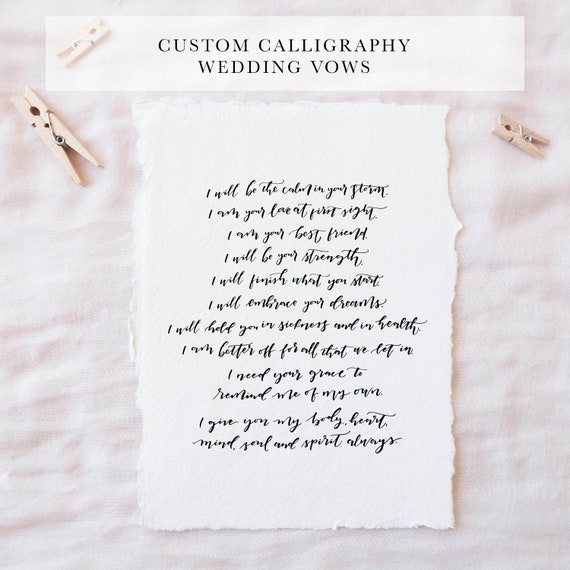 CUSTOM CALLIGRAPHY
WEDDING VOWS
I will be the calm in your storm.
I am your love at first sight.
I am your best friend.
I will be your strength.
I will finish what you start.
I will embrace your dreams.
I will hold you in sickness and in health.
I am better off for all that we let in.
I need your grace to
remind me of my own.
I give you my body, heart,
mind, soul and spirit always.